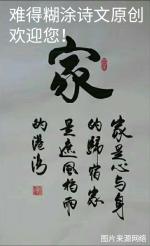 难得糊涂诗文原创
欢迎您！
家
家是心与身
的归宿家
是遮风挡雨
的港湾
图片来源网络